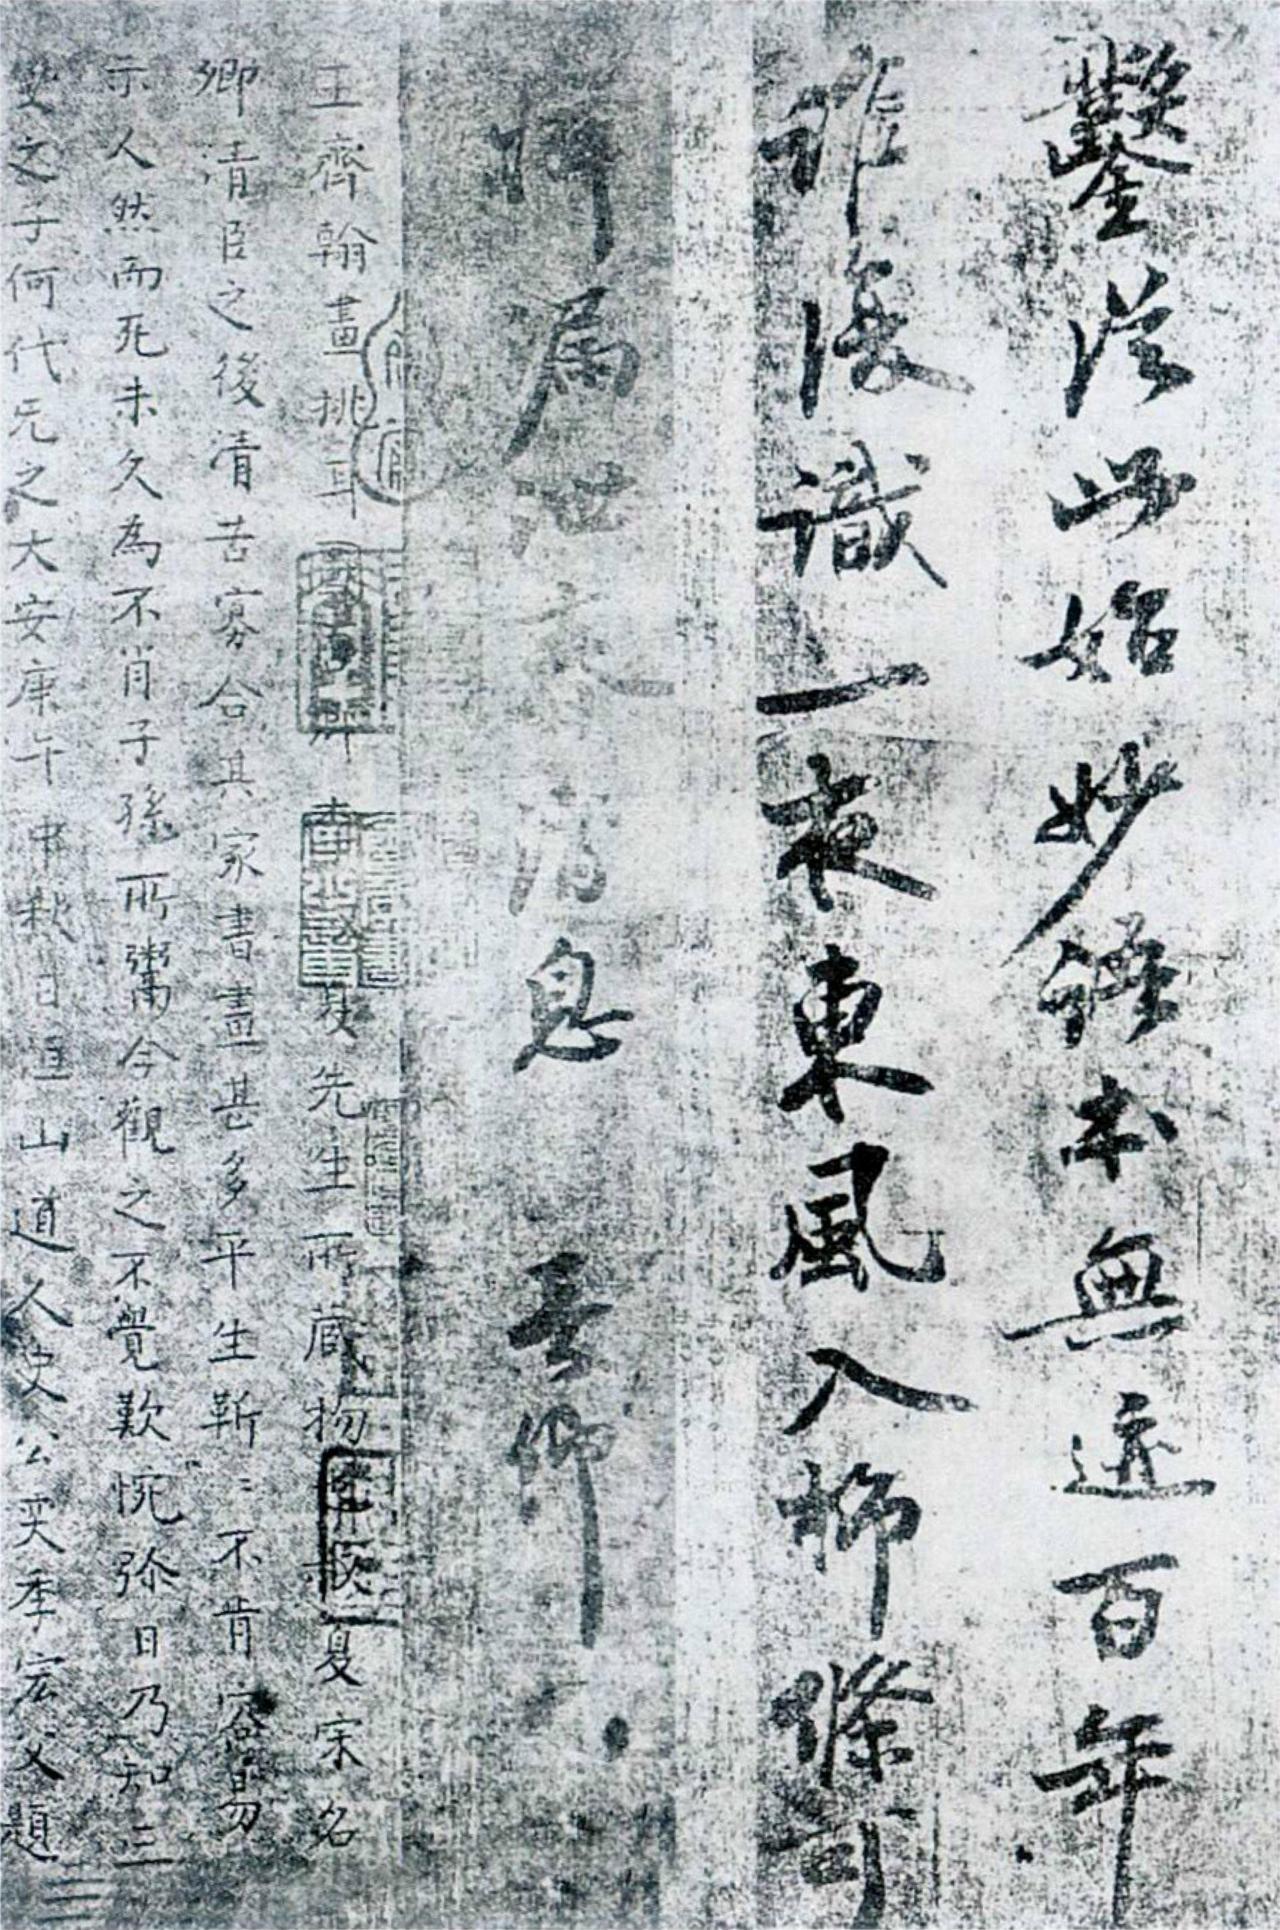 鑿從此始妙語本無迹百年
誰復識一夜東風入柳條可
息 卿
王齊翰畫挑耳 夏先生所藏物 夏宋名
卿清臣之後清苦寡合其家書畫甚多平生靳〻不肯容易
示人然而死未久為不肖子孫所鬻今觀之不覺歎惋弥日乃知三
之子何代无之大安庚午中秋日 山道人史公奕季宏父題